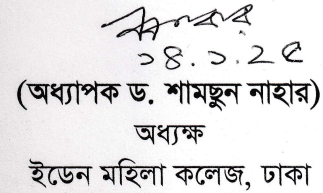 ১৪.১.২৫
(অধ্যাপক ড. শামছুন নাহার)
অধ্যক্ষ
ইডেন মহিলা কলেজ, ঢাকা